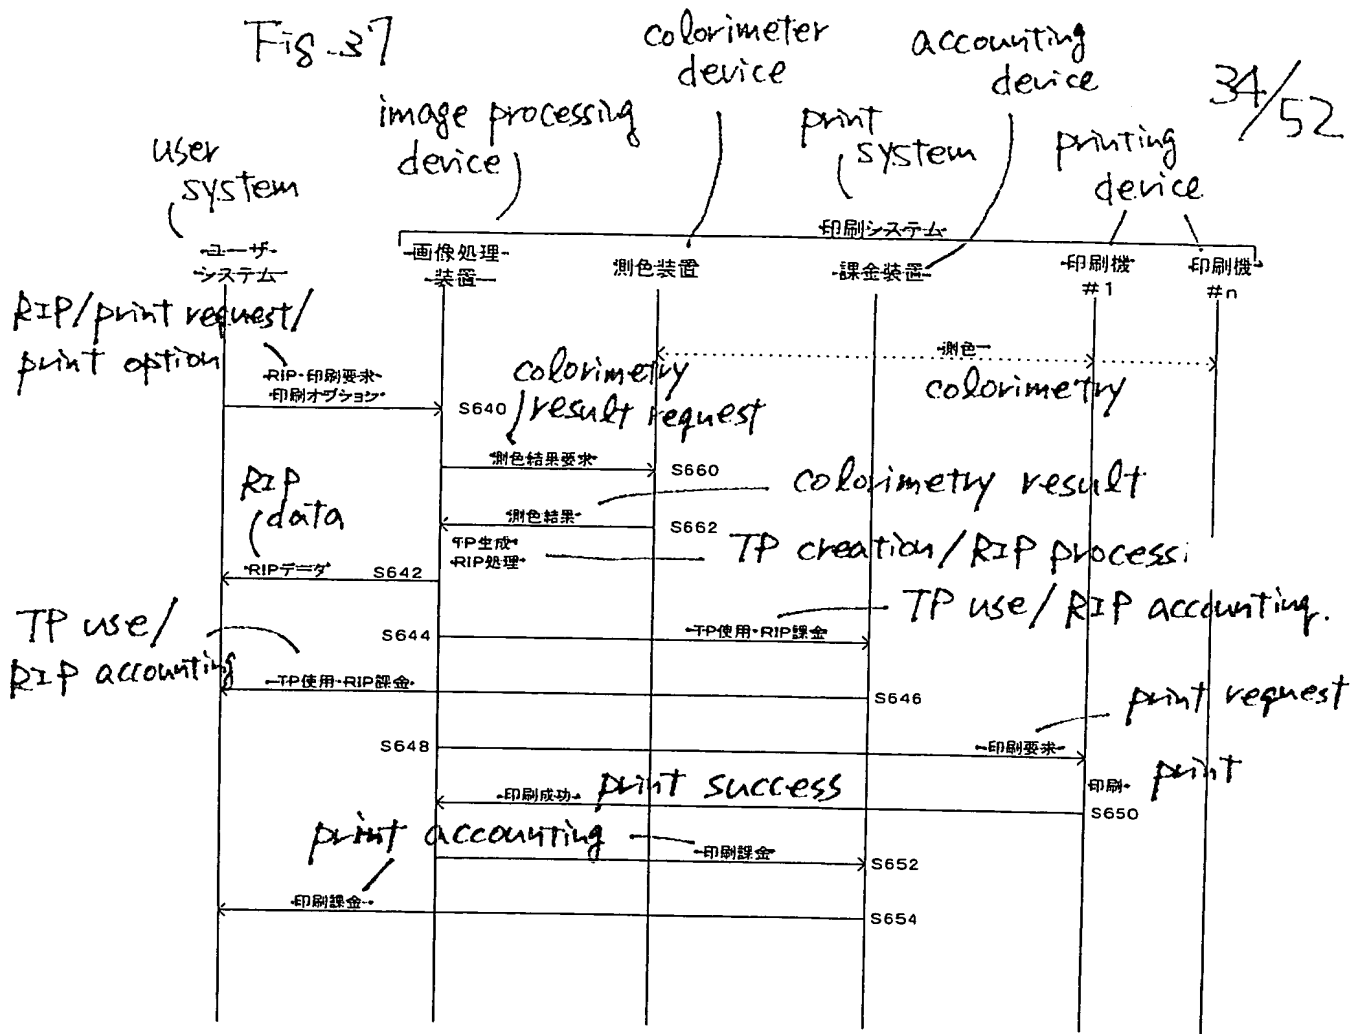 Fig. 37
34/52
colorimeter
device
accounting
device
image processing
device
print
system
printing
device
user
system
印刷システム
ユーザ
システム
画像処理
装置
測色装置
課金装置
印刷機
#1
印刷機
#n
RIP/print request/
print option
測色
colorimetry
RIP・印刷要求
印刷オプション
S640
colorimetry
result request
測色結果要求
S660
colorimetry result
測色結果
S662
RIP
data
TP生成
RIP処理
TP creation/RIP process
RIPデータ
S642
TP use/RIP accounting.
S644
TP使用・RIP課金
TP use/
RIP accounting
TP使用・RIP課金
S646
print request
S648
印刷要求
印刷
print
印刷成功
print success
S650
print accounting
印刷課金
S652
印刷課金
S654